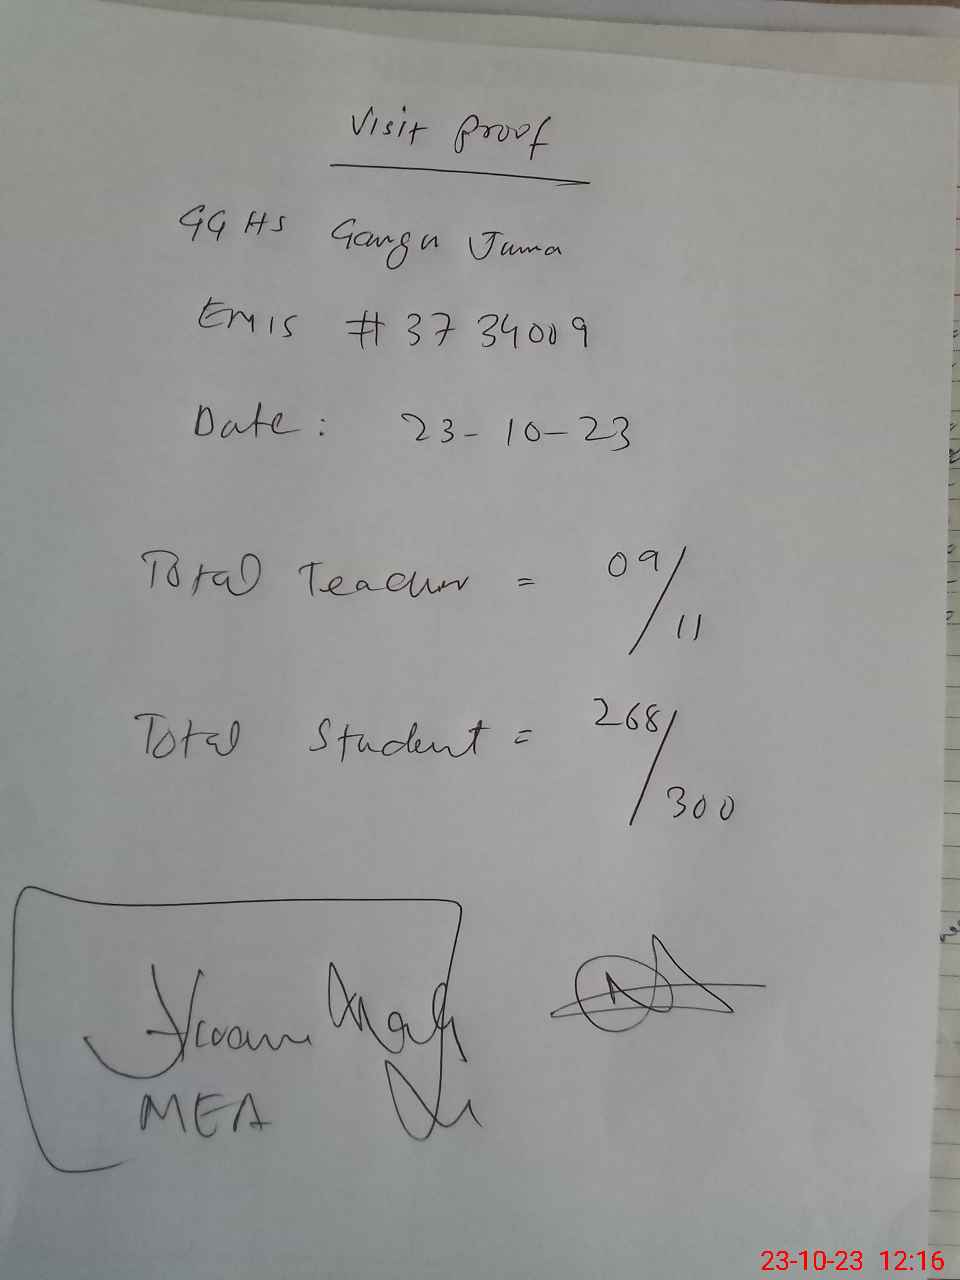 Visit Proof
GGHS Gangu Juma
Emis # 37 34009
Date: 23-10-23
Total Teacher = 09/11
Total Student = 268/300
MEA
23-10-23 12:16